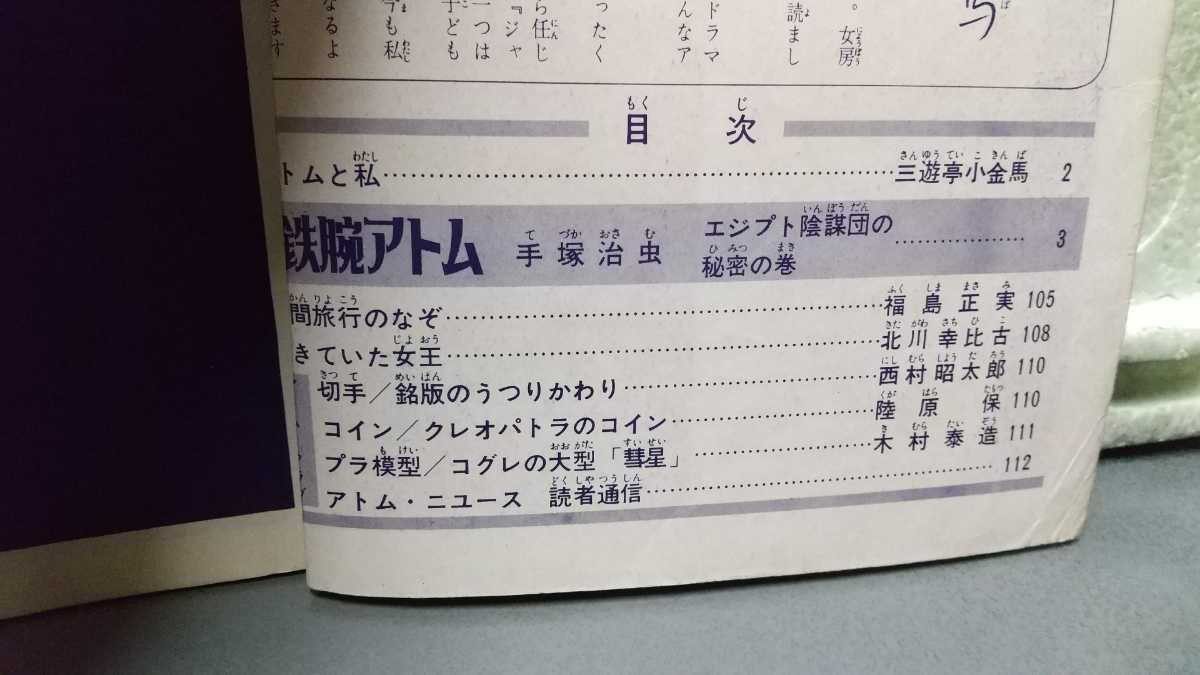 馬
。女房
読まし
ドラマ
んなア
ったく
ら任じ
『ジャ
一つは
子ども
今も私
なるよ
きます
目次
トムと私 三遊亭小金馬 2
鉄腕アトム 手塚治虫 エジプト陰謀団の秘密の巻 3
間旅行のなぞ 福島正実 105
きていた女王 北川幸比古 108
切手/銘版のうつりかわり 西村昭太郎 110
コイン/クレオパトラのコイン 陸原保 110
プラ模型/コグレの大型「彗星」 木村泰造 111
アトム・ニユース 読者通信 112